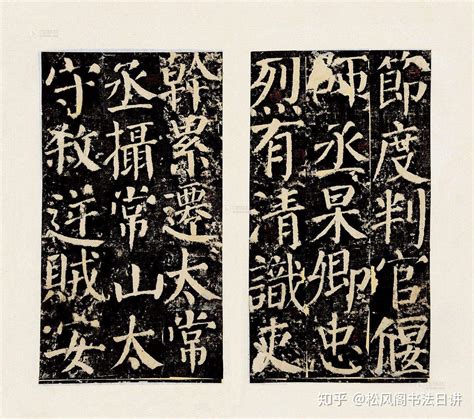 節度判官偃
師丞杲卿忠
烈有清識吏
幹累遷太常
丞攝常山太
守殺逆賊安
知乎 @松风阁书法日讲